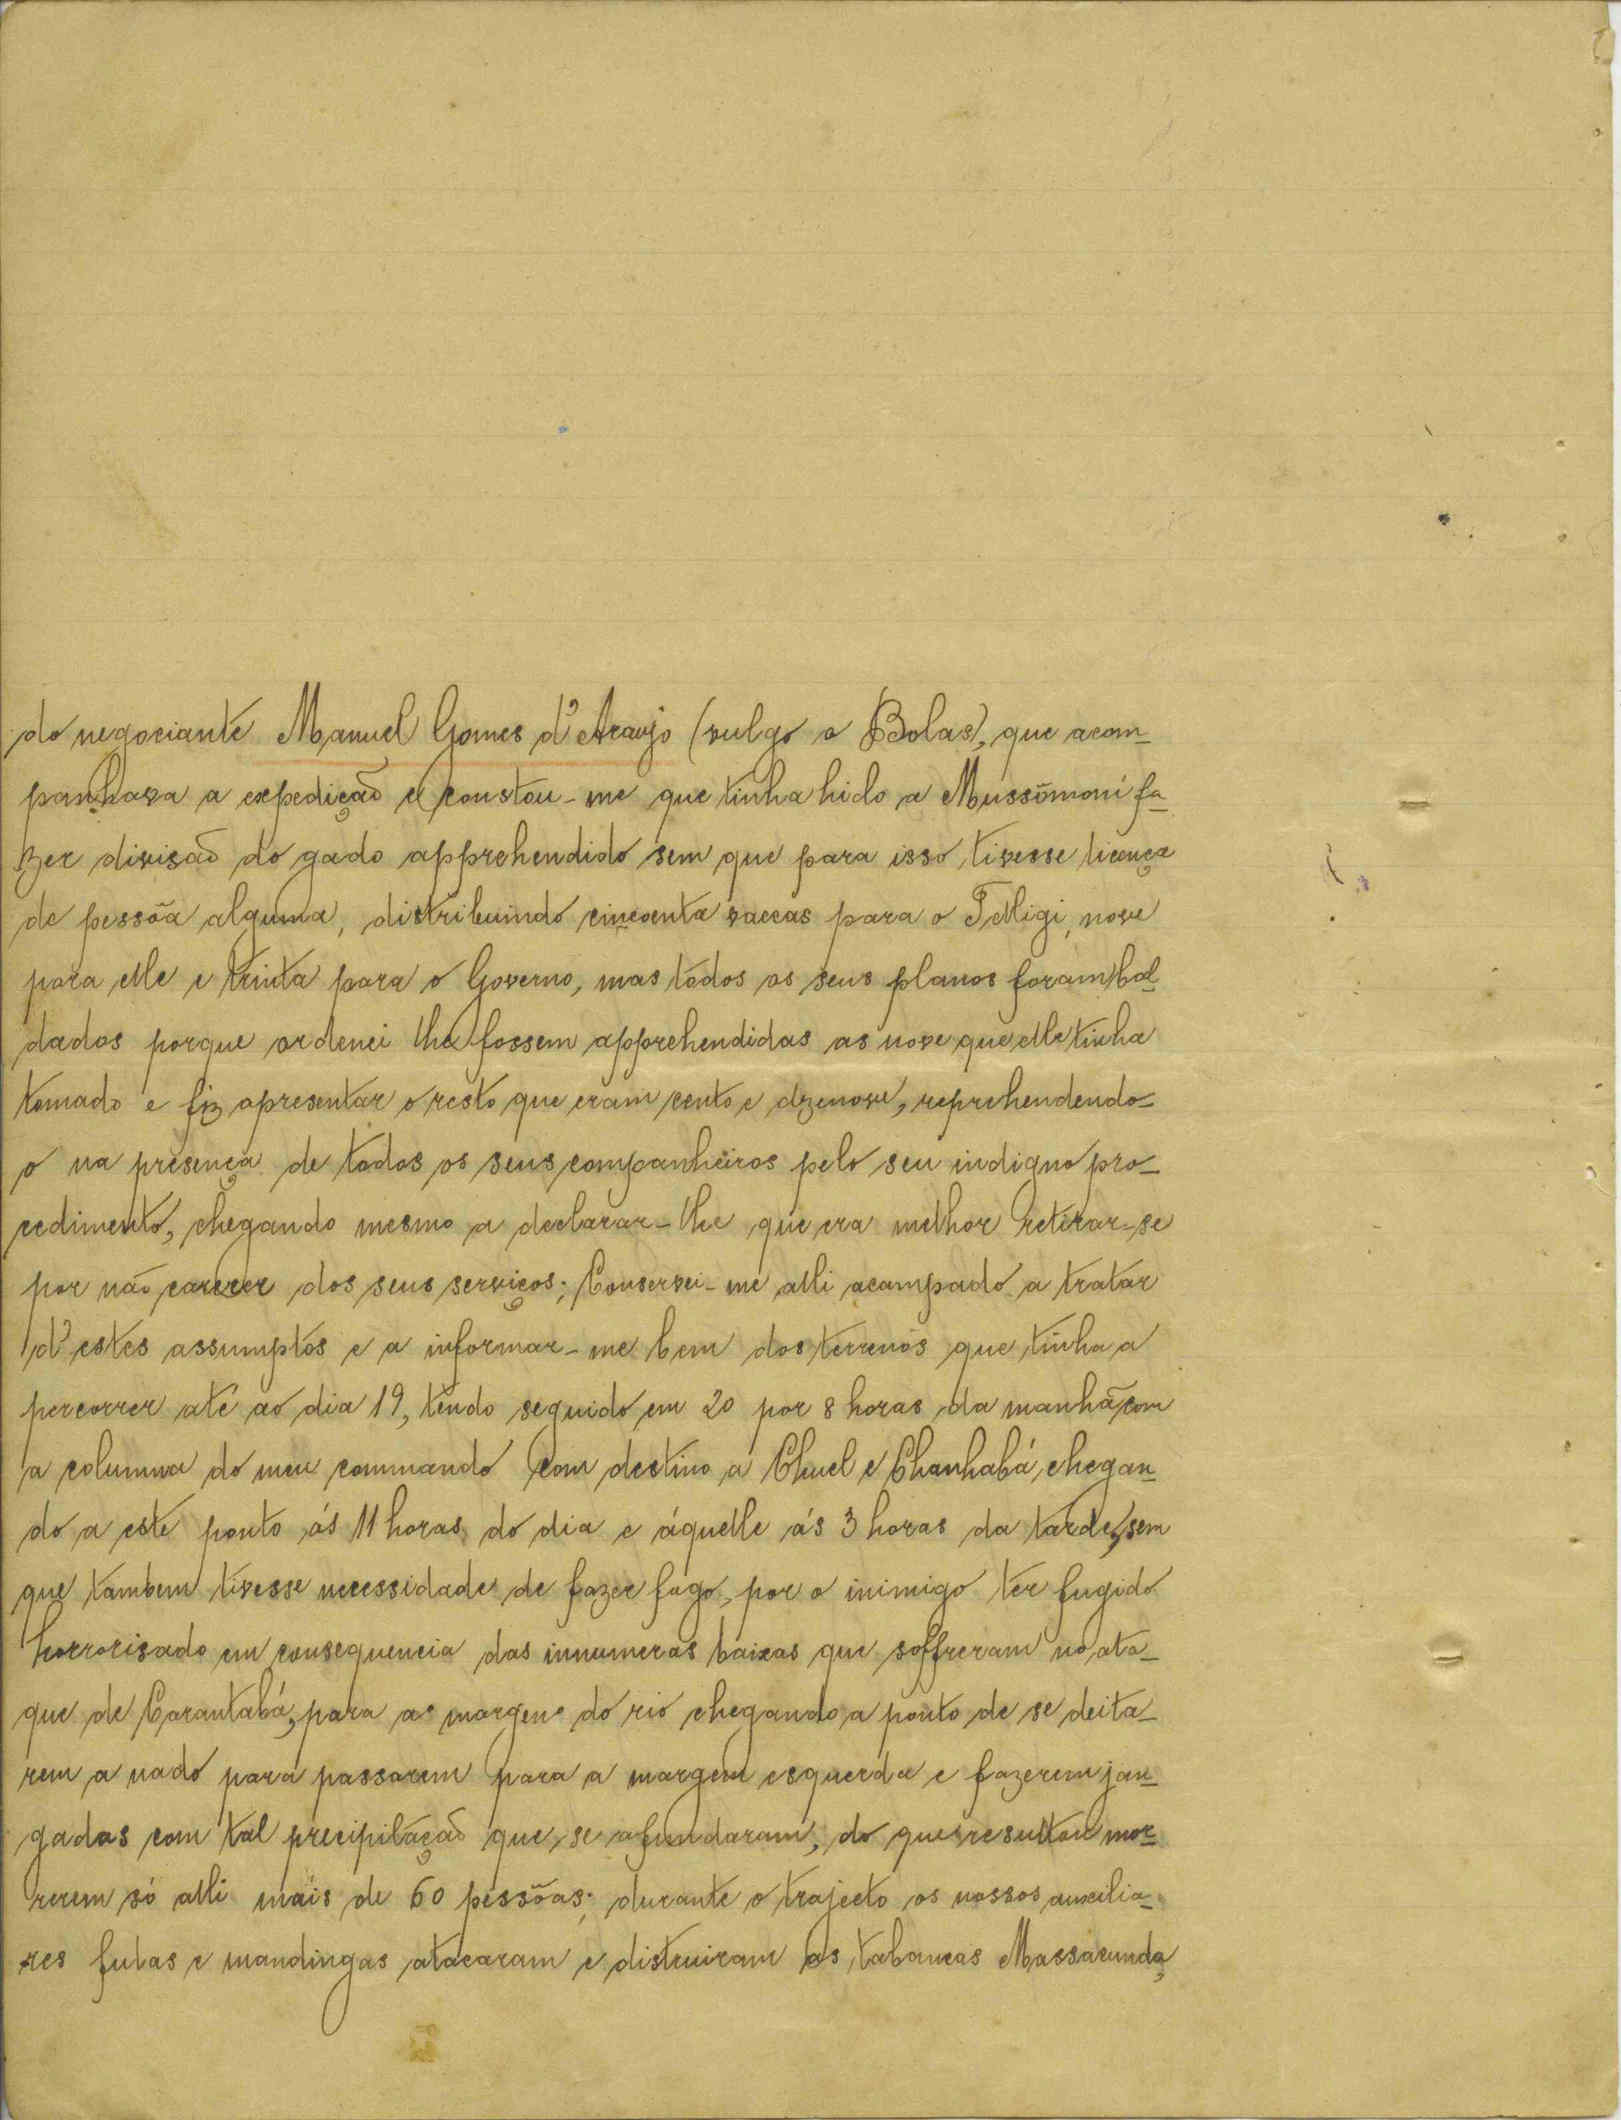 do negociante Manuel Gomes d'Araujo (vulgo o Bolas), que acom-
panhava a expedição e constou-me que tinha hido a Mussômoni fa-
zer divisão do gado apprehendido sem que para isso tivesse licença
de pessôa alguma, distribuindo cincoenta vaccas para o Telligi, nove
para elle e trinta para o Governo, mas todos os seus planos foram bal-
dados porque ordenei lhe fossem apprehendidas as nove que elle tinha
tomado e fiz apresentar o resto que eram cento e dzenove, reprehendendo-
o na presença de todos os seus companheiros pelo seu indigno pro-
cedimento, chegando mesmo a declarar-lhe que era melhor retirar-se
por não carecer dos seus serviços; Conservei-me alli acampado a tratar
d'estes assumptos e a informar-me bem dos terrenos que tinha a
percorrer até ao dia 19, tendo seguido em 20 por 8 horas da manhã com
a columna do meu commando com destino a Chuel e Chanhabá, chegan-
do a este ponto ás 11 horas do dia e áquelle ás 3 horas da tarde, sem
que tambem tivesse necessidade de fazer fogo, por o inimigo ter fugido
horrorisado em consequencia das innumeras baixas que soffreram no ata-
que de Carantabá, para as margens do rio chegando a ponto de se deita-
rem a nado para passarem para a margem esquerda e fazerem jan-
gadas com tal precipitação que se afundaram, do que resultou mor-
rerem só alli mais de 60 pessôas; durante o trajecto os nossos auxilia-
res fulas e mandingas atacaram e distruiram as tabancas Massacunda,